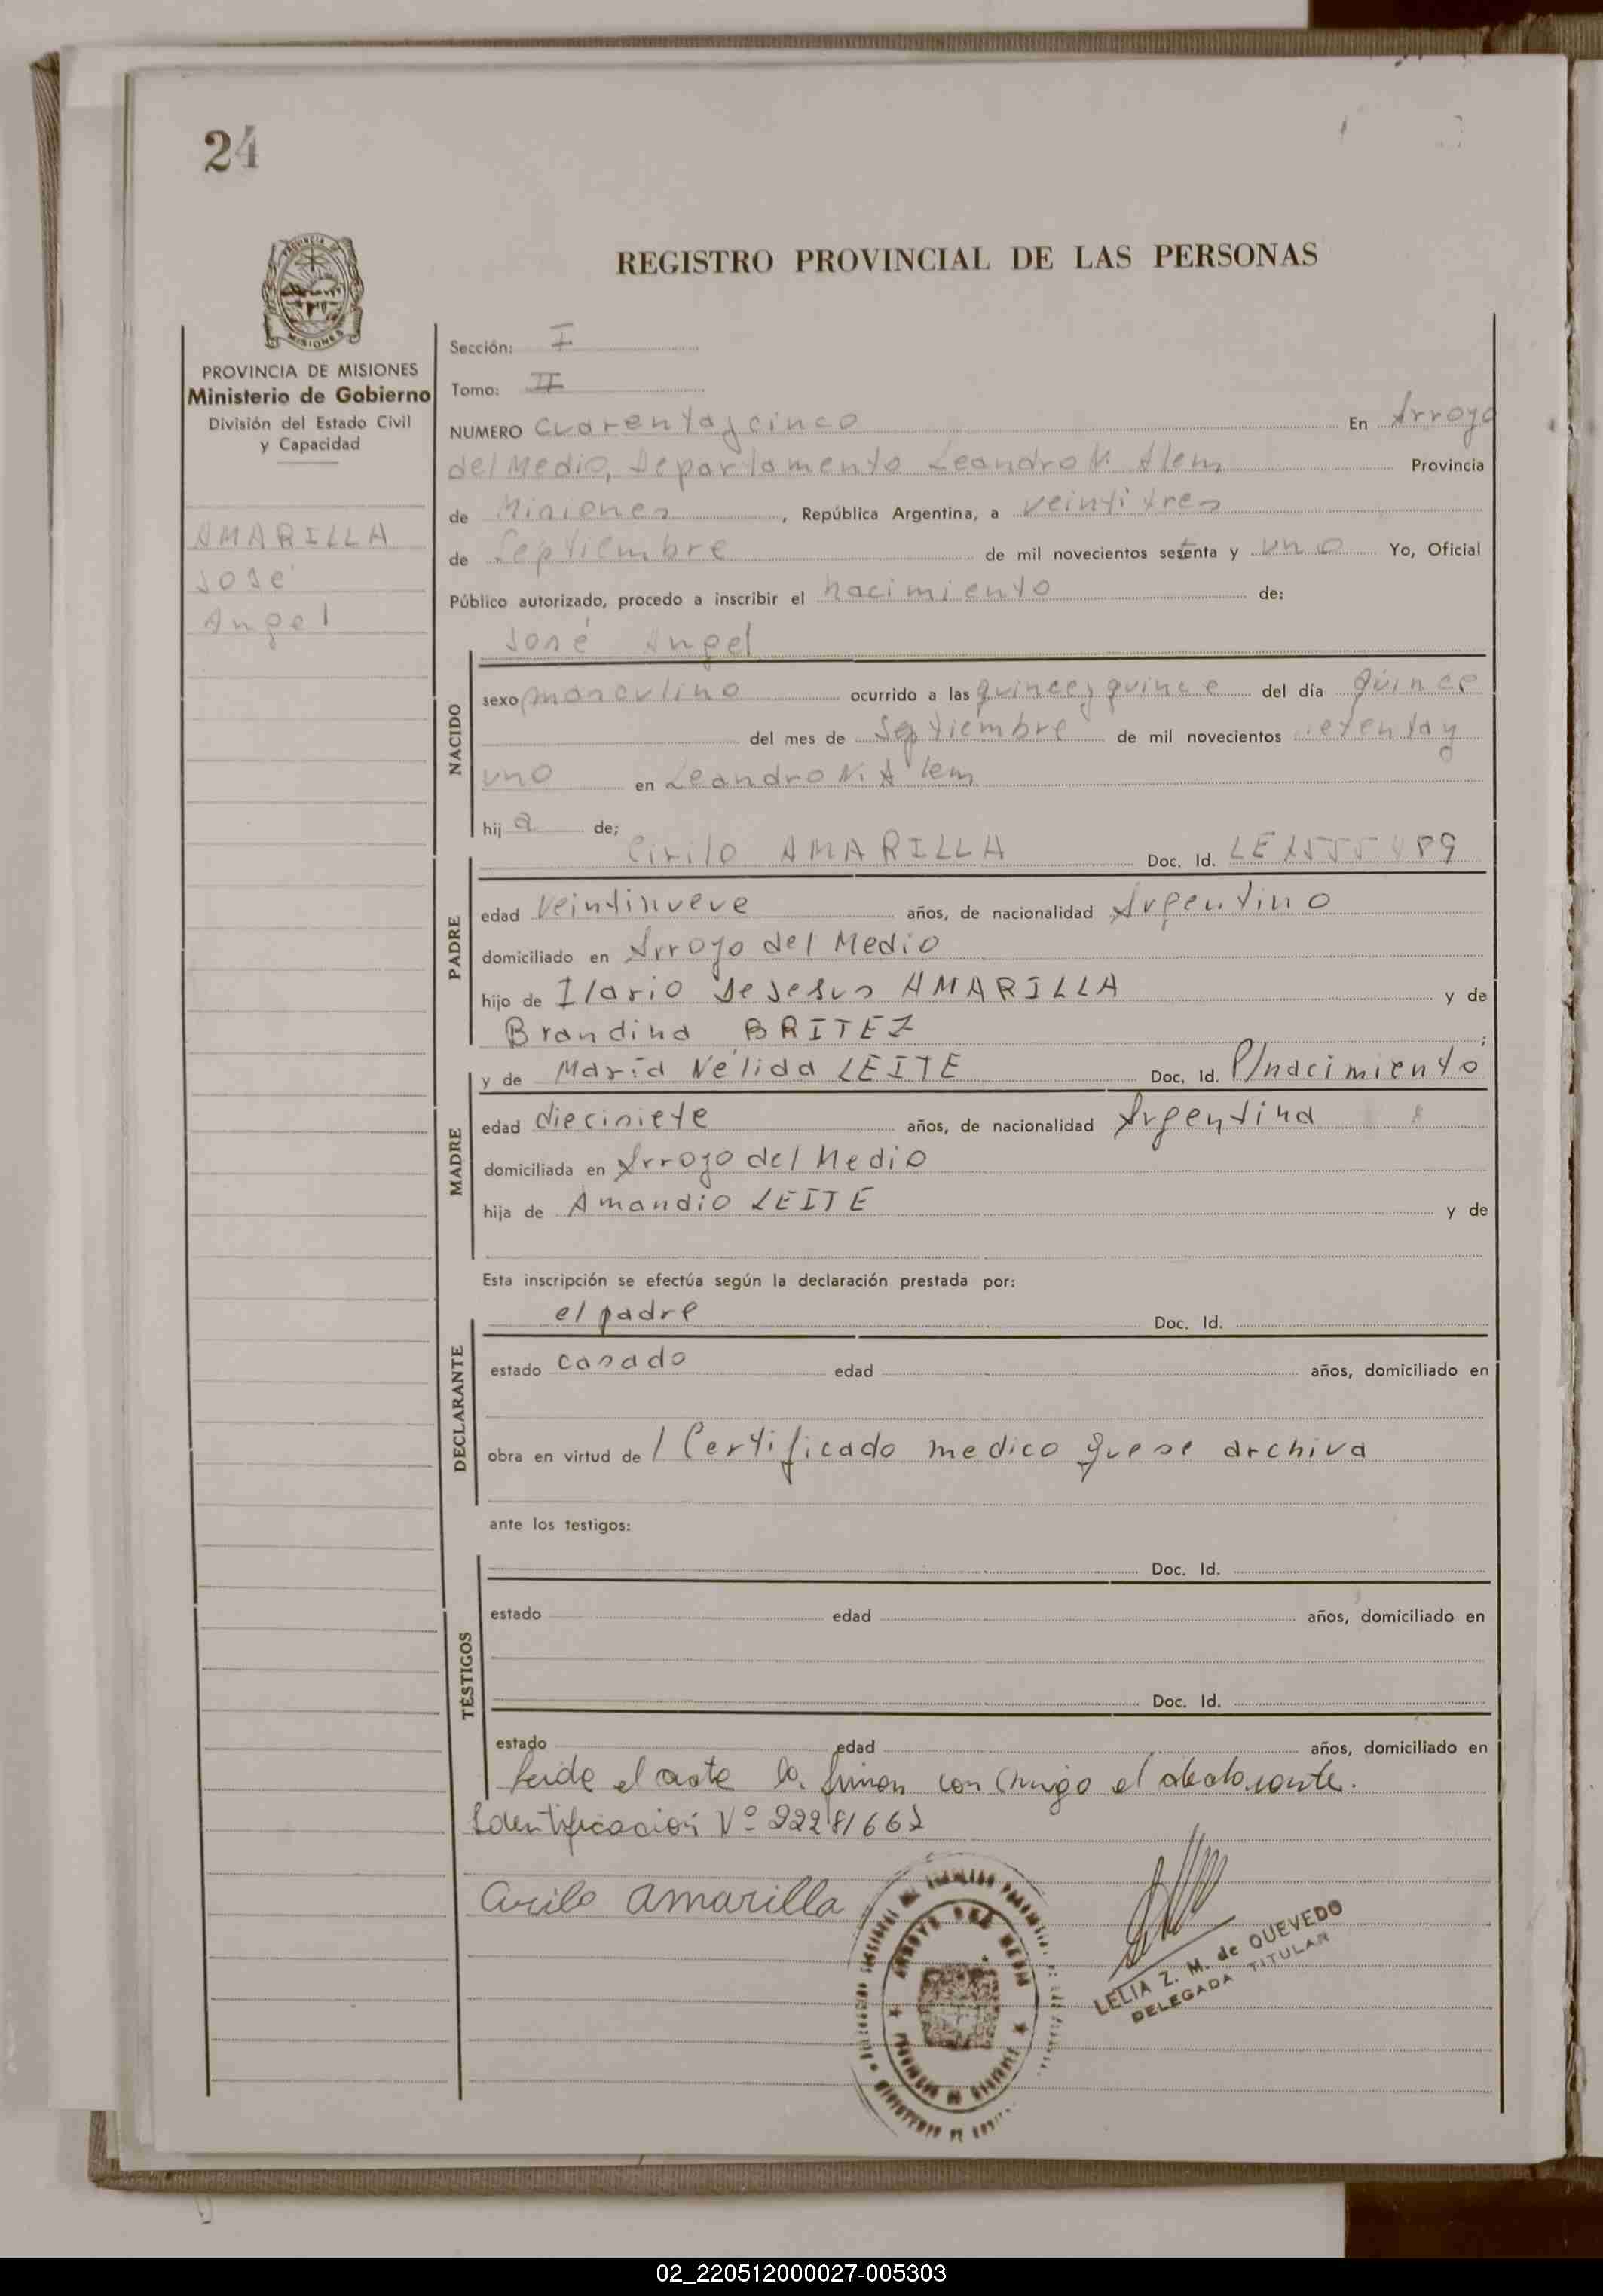 24
REGISTRO PROVINCIAL DE LAS PERSONAS
MISIONES
PROVINCIA DE MISIONES
Ministerio de Gobierno
División del Estado Civil
y Capacidad
AMARILLA
José
Angel
Sección: I
Tomo: II
NUMERO cuarenta y cinco En Arroyo
del Medio, Departamento Leandro N. Alem Provincia
de Misiones, República Argentina, a veintitres
de Septiembre de mil novecientos setenta y uno Yo, Oficial
Público autorizado, procedo a inscribir el nacimiento de:
José Angel
NACIDO
sexo masculino ocurrido a las quince y quince del día quince
del mes de Septiembre de mil novecientos setenta y
uno en Leandro N. Alem
hij a de;
Cirilo AMARILLA Doc. Id. LE
PADRE
edad veintinueve años, de nacionalidad Argentino
domiciliado en Arroyo del Medio
hijo de Ilario De Jesus AMARILLA y de
Brandina BRITEZ ;
y de María Nélida LEITE Doc. Id. P/nacimiento
MADRE
edad diecisiete años, de nacionalidad Argentina
domiciliada en Arroyo del Medio
hija de Amandio LEITE y de
Esta inscripción se efectúa según la declaración prestada por:
el padre Doc. Id.
DECLARANTE
estado casado edad años, domiciliado en
obra en virtud de 1 Certificado medico que se archiva
ante los testigos:
Doc. Id.
TESTIGOS
estado edad años, domiciliado en
Doc. Id.
estado edad años, domiciliado en
Leida el acta la firman con migo el declarante.
Identificacion Nº 22281662
Cirilo Amarilla
ARROYO DEL MEDIO
PROVINCIA DE MISIONES
LELIA Z. M. de QUEVEDO
DELEGADA TITULAR
02_220512000027-005303